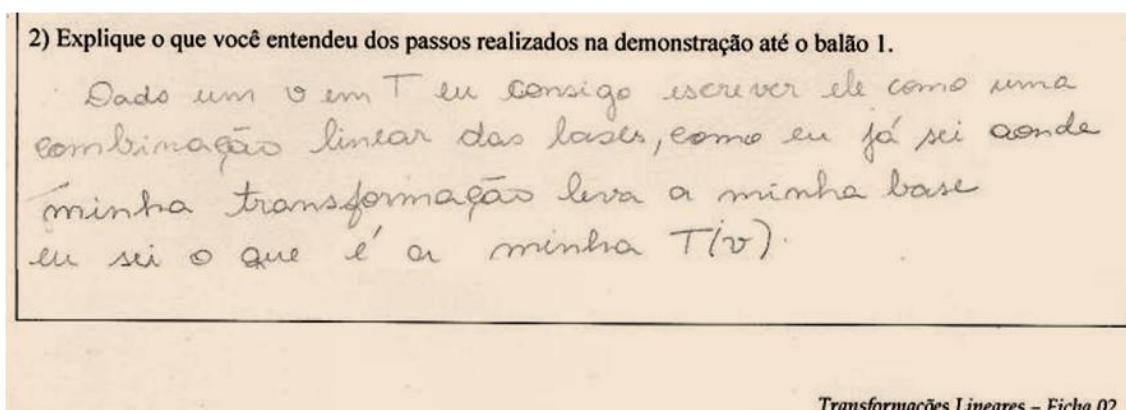 2) Explique o que você entendeu dos passos realizados na demonstração até o balão 1.
Dado um v em T eu consigo escrever ele como uma
combinação linear das bases, como eu já sei aonde
minha transformação leva a minha base
eu sei o que é a minha T(v).
Transformações Lineares – Ficha 02